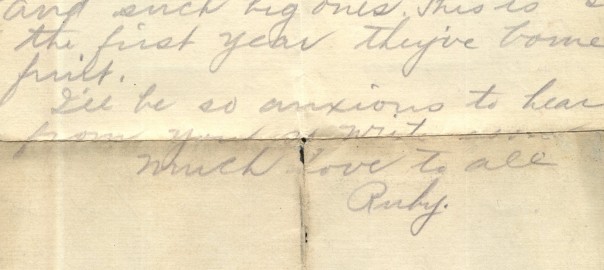 and such big ones. This is
the first year they've borne
fruit.
I'll be so anxious to hear
from you so write soon
Much love to all
Ruby.